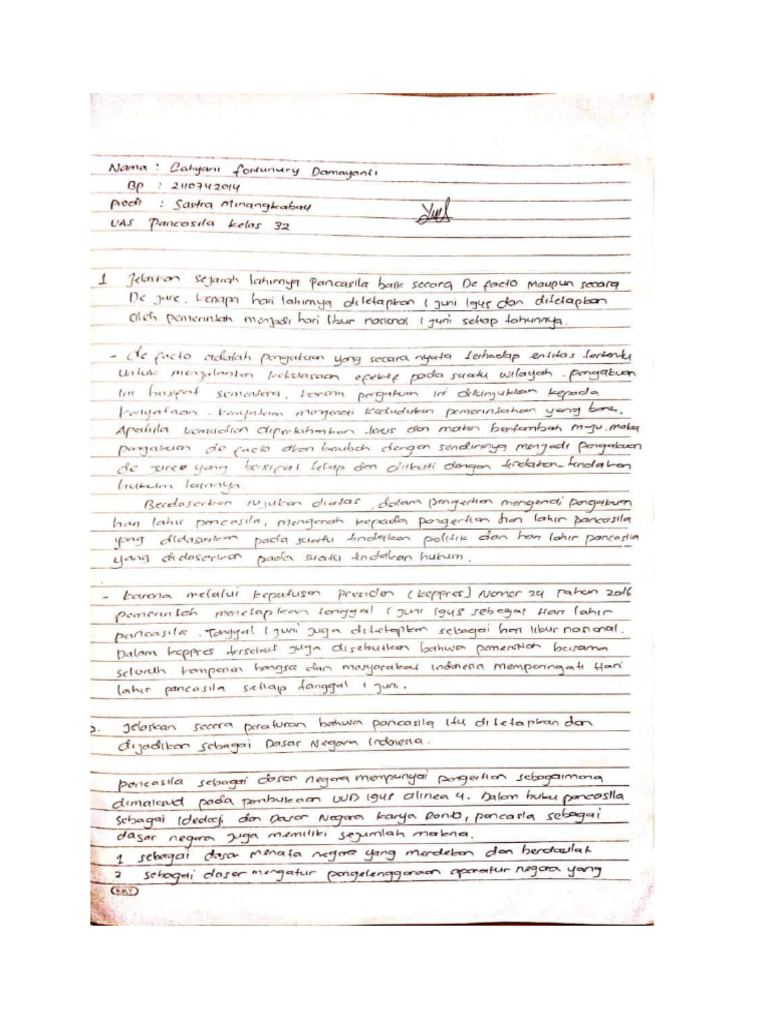 Nama : Cahyani fortunury Damayanti
Bp : 2110742014
Prodi : Sastra Minangkabau
UAS Pancasila kelas 32
1 Jelaskan sejarah lahirnya Pancasila baik secara De facto maupun secara
De jure. kenapa hari lahirnya ditetapkan 1 juni 1945 dan ditetapkan
oleh pemerintah menjadi hari libur nasional 1 juni setiap tahunnya.
- de facto adalah pengakuan yang secara nyata terhadap entitas tertentu
untuk menjalankan kekuasaan efektif pada suatu wilayah. pengakuan
ini bersifat sementara, karena pengakuan ini ditunjukkan kepada
kenyataan. kenyataan mengenai kedudukan pemerintahan yang baru.
Apabila kemudian dipertahankan terus dan makin bertambah maju, maka
pengakuan de facto akan berubah dengan sendirinya menjadi pengakuan
de jure yang bersifat tetap dan diikuti dengan tindakan-tindakan
hukum lainnya.
Berdasarkan rujukan diatas, dalam pengertian mengenai pengakuan
hari lahir pancasila, mengarah kepada pengertian hari lahir pancasila
yang didasarkan pada suatu tindakan politik dan hari lahir pancasila
yang didasarkan pada suatu tindakan hukum.
- karena melalui keputusan presiden (keppres) Nomor 24 tahun 2016
pemerintah menetapkan tanggal 1 juni 1945 sebagai Hari lahir
pancasila. Tanggal 1 juni juga ditetapkan sebagai hari libur nasional.
Dalam keppres tersebut juga disebutkan bahwa pemerintah bersama
seluruh komponen bangsa dan masyarakat Indonesia memperingati Hari
lahir pancasila setiap tanggal 1 juni.
2. Jelaskan secara peraturan bahwa pancasila itu ditetapkan dan
dijadikan sebagai Dasar Negara Indonesia.
pancasila sebagai dasar negara mempunyai pengertian sebagaimana
dimaksud pada pembukaan UUD 1945 alinea 4. Dalam buku pancasila
sebagai Ideologi dan Dasar Negara karya Ronto, pancasila sebagai
dasar negara juga memiliki sejumlah makna.
1 sebagai dasar menata negara yang merdeka dan berdaulat
2 sebagai dasar mengatur pengelenggaraan aparatur negara yang